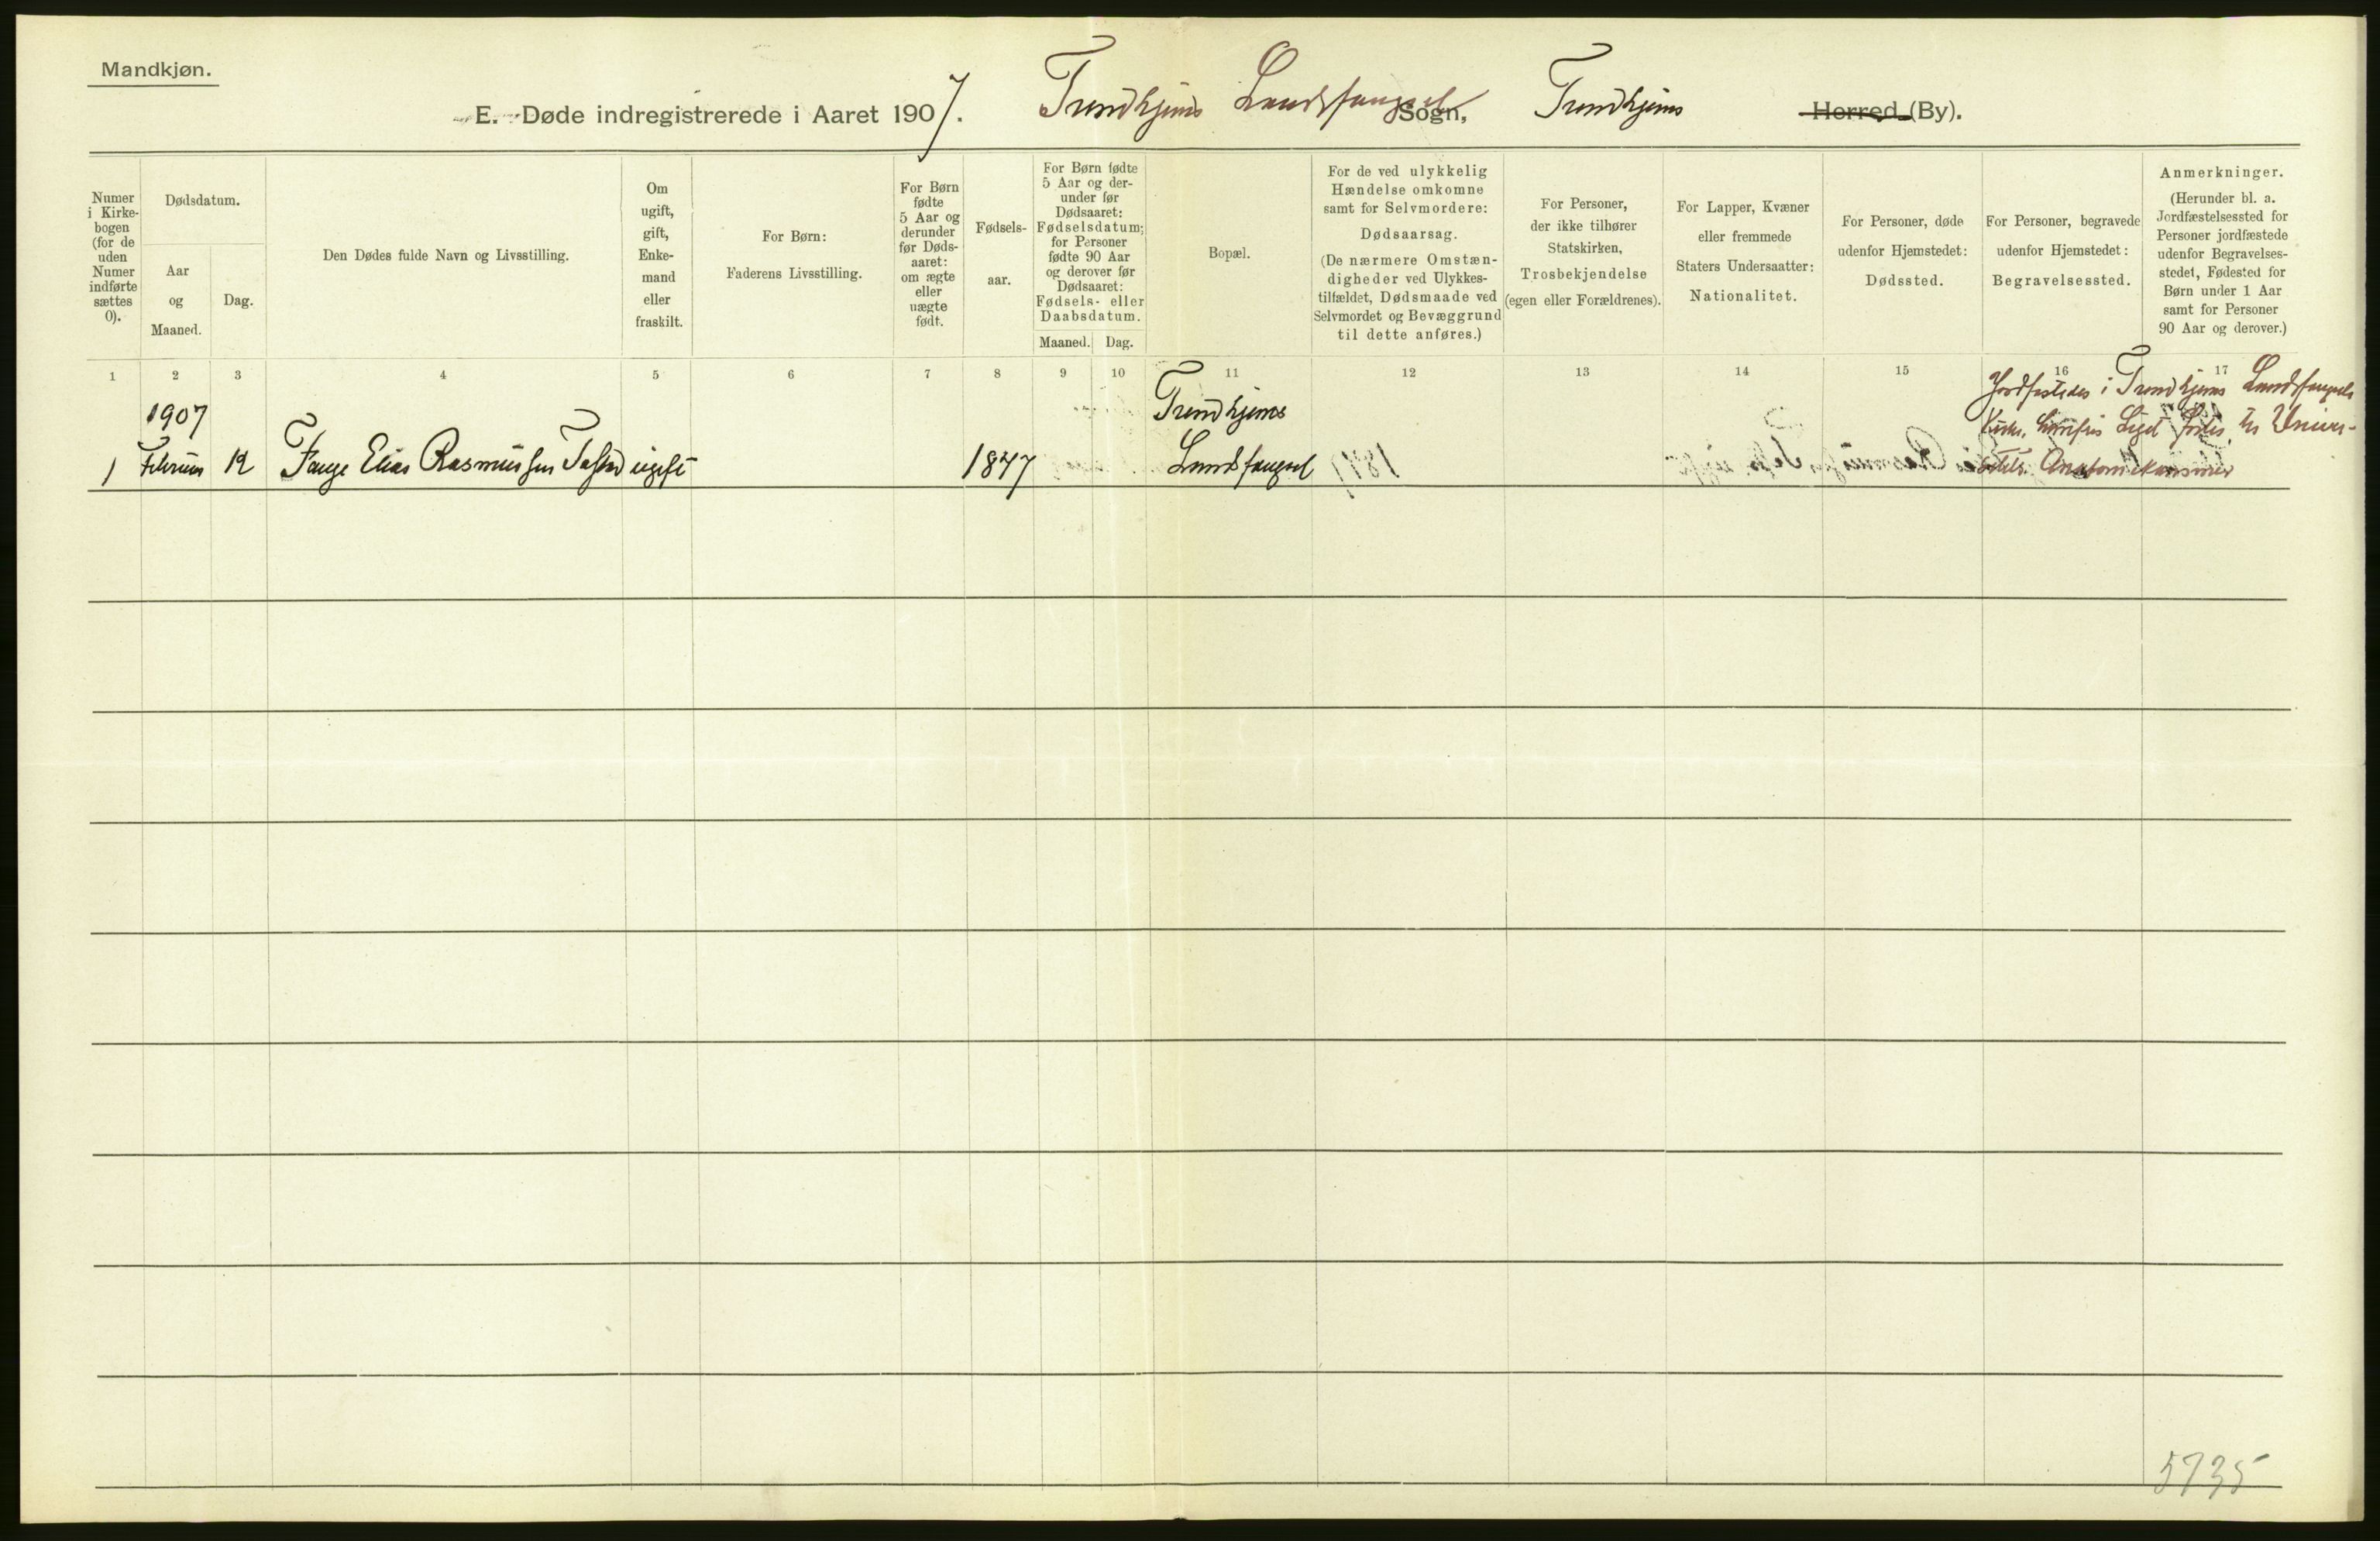 Mandkjøn.
E. Døde indregistrerede i Aaret 1907. Trondhjems Landsfængsel Sogn, Trondhjems Herred (By).
Numer
i Kirke-
bogen
(for de
uden
Numer
indførte
sættes
0).
Dødsdatum.
Aar
og
Maaned.
Dag.
Den Dødes fulde Navn og Livsstilling.
Om
ugift,
gift,
Enke-
mand
eller
fraskilt.
For Børn:
Faderens Livsstilling.
For Børn
fødte
5 Aar og
derunder
før Døds-
aaret:
om ægte
eller
uægte
født.
Fødsels-
aar.
For Børn fødte
5 Aar og der-
under før
Dødsaaret:
Fødselsdatum;
for Personer
fødte 90 Aar
og derover før
Dødsaaret:
Fødsels- eller
Daabsdatum.
Maaned. Dag.
Bopæl.
For de ved ulykkelig
Hændelse omkomne
samt for Selvmordere:
Dødsaarsag.
(De nærmere Omstæn-
digheder ved Ulykkes-
tilfældet, Dødsmaade ved
Selvmordet og Bevæggrund
til dette anføres.)
For Personer,
der ikke tilhører
Statskirken,
Trosbekjendelse
(egen eller Forældrenes).
For Lapper, Kvæner
eller fremmede
Staters Undersaatter:
Nationalitet.
For Personer, døde
udenfor Hjemstedet:
Dødssted.
For Personer, begravede
udenfor Hjemstedet:
Begravelsessted.
Anmerkninger.
(Herunder bl. a.
Jordfæstelsessted for
Personer jordfæstede
udenfor Begravelses-
stedet, Fødested for
Børn under 1 Aar
samt for Personer
90 Aar og derover.)
1 2 3 4 5 6 7 8 9 10 11 12 13 14 15 16 17
1907
Trondhjems
Jordfestedes i Trondhjems Landsfængsels
Kirke, hvorfra Liget førtes til Univer-
1 Februar 12 Fange Elias Rasmussen ugift 1847 Landsfængsel
sitets Anatomikammer
5735